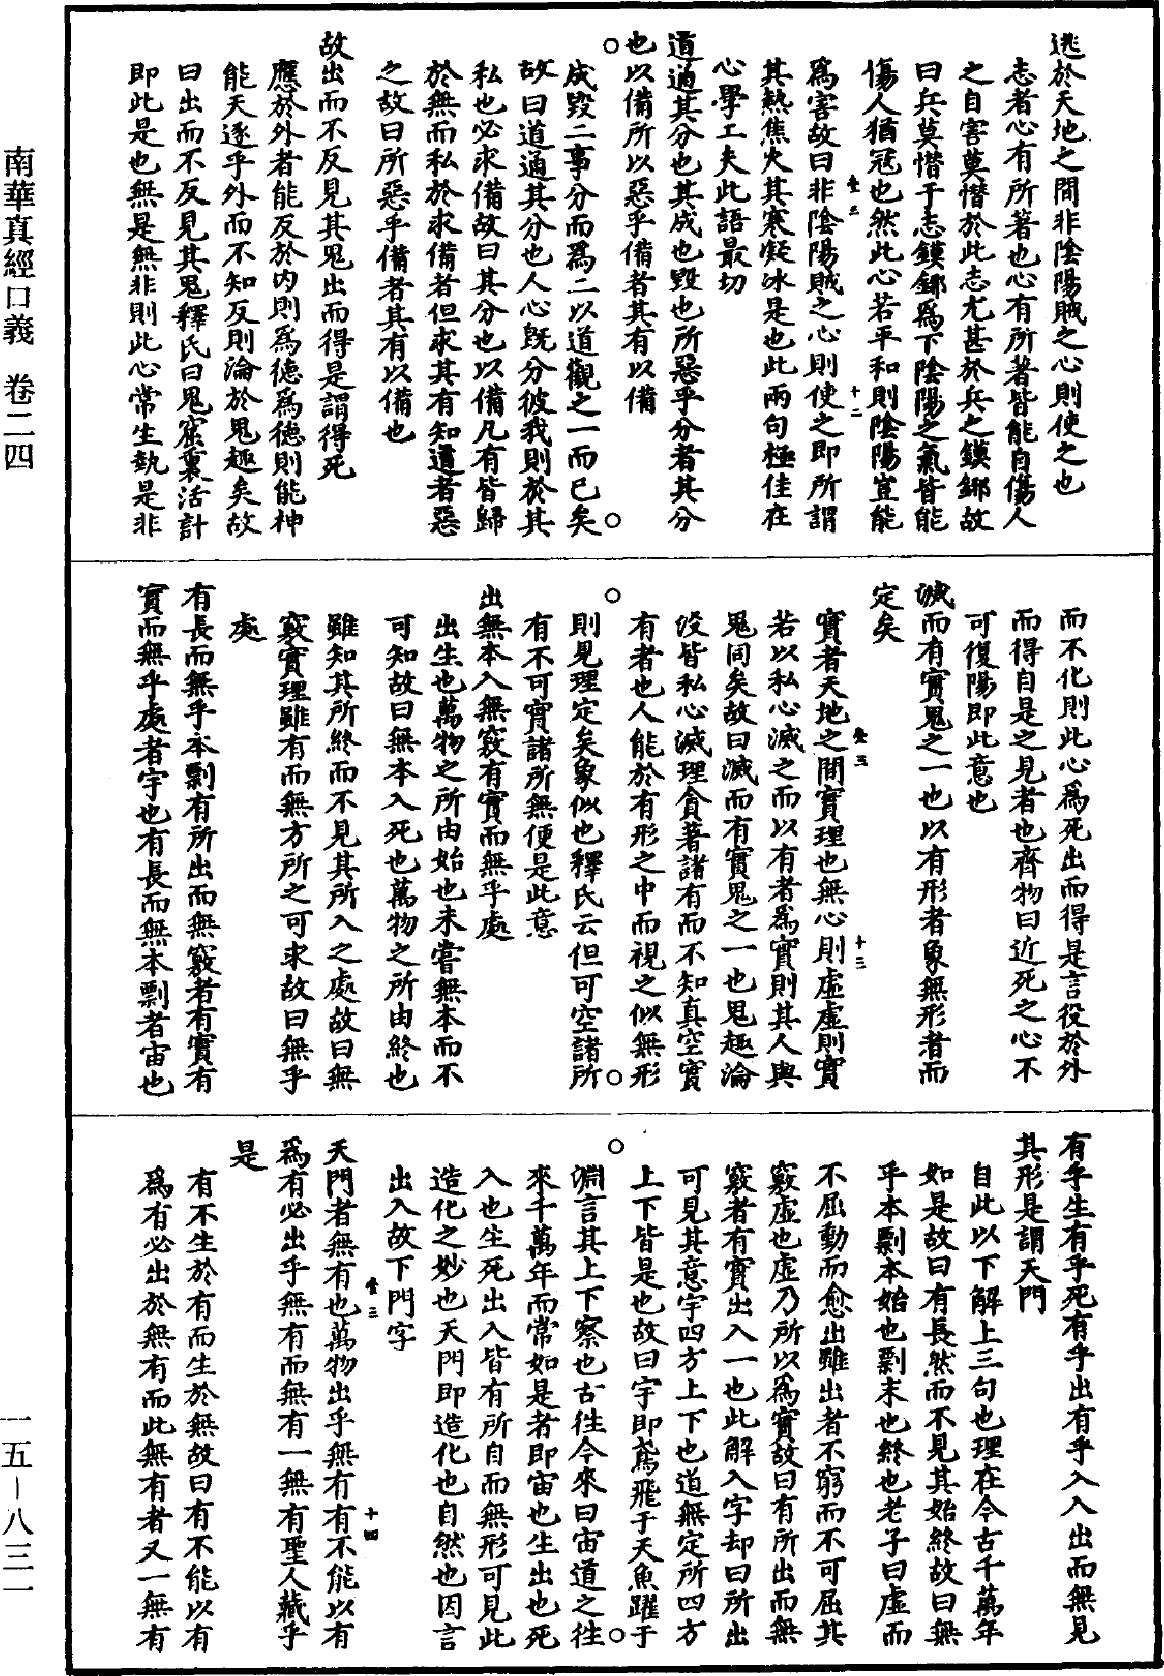 逃於天地之間非陰陽賊之心則使之也
志者心有所著也心有所著皆能自傷人
之自害莫憯於此志尤甚於兵之鏌鎁故
曰兵莫憯于志鏌鎁為下陰陽之氣皆能
傷人猶冦也然此心若平和則陰陽豈能
為害故曰非陰陽賊之心則使之即所謂
其熱焦火其寒凝冰是也此兩句極佳在
心學工夫此語最切
道通其分也其成也毀也所惡乎分者其分
也以備所以惡乎備者其有以備
成毀二事分而為二以道觀之一而已矣
故曰道通其分也人心既分彼我則於其
私也必求備故曰其分也以備凡有皆歸
於無而私於求備者但求其有知道者惡
之故曰所惡乎備者其有以備也
故出而不反見其鬼出而得是謂得死
應於外者能反於內則為德為德則能神
能天逐乎外而不知反則淪於鬼趣矣故
曰出而不反見其鬼釋氏曰鬼窟裏活計
即此是也無是無非則此心常生執是非
而不化則此心為死出而得是言役於外
而得自是之見者也齊物曰近死之心不
可復陽即此意也
滅而有實鬼之一也以有形者象無形者而
定矣
實者天地之間實理也無心則虛虛則實
若以私心滅之而以有者為實則其人與
鬼同矣故曰滅而有實鬼之一也鬼趣淪
沒皆私心滅理貪著諸有而不知真空實
有者也人能於有形之中而視之似無形
則見理定矣象似也釋氏云但可空諸所
有不可實諸所無便是此意
出無本入無竅有實而無乎處
出生也萬物之所由始也未嘗無本而不
可知故曰無本入死也萬物之所由終也
雖知其所終而不見其所入之處故曰無
竅實理雖有而無方所之可求故曰無乎
處
有長而無乎本剽有所出而無竅者有實有
實而無乎處者宇也有長而無本剽者宙也
有乎生有乎死有乎出有乎入入出而無見
其形是謂天門
自此以下解上三句也理在今古千萬年
如是故曰有長然而不見其始終故曰無
乎本剽本始也剽末也終也老子曰虛而
不屈動而愈出雖出者不窮而不可屈其
竅虛也虛乃所以為實故曰有所出而無
竅者有實出入一也此解入字却曰所出
可見其意宇四方上下也道無定所四方
上下皆是也故曰宇即鳶飛于天魚躍于
淵言其上下察也古往今來曰宙道之往
來千萬年而常如是者即宙也生出也死
入也生死出入皆有所自而無形可見此
造化之妙也天門即造化也自然也因言
出入故下門字
天門者無有也萬物出乎無有有不能以有
為有必出乎無有而無有一無有聖人藏乎
是
有不生於有而生於無故曰有不能以有
為有必出於無有而此無有者又一無有
南華真經口義　卷二四
一五－八三一